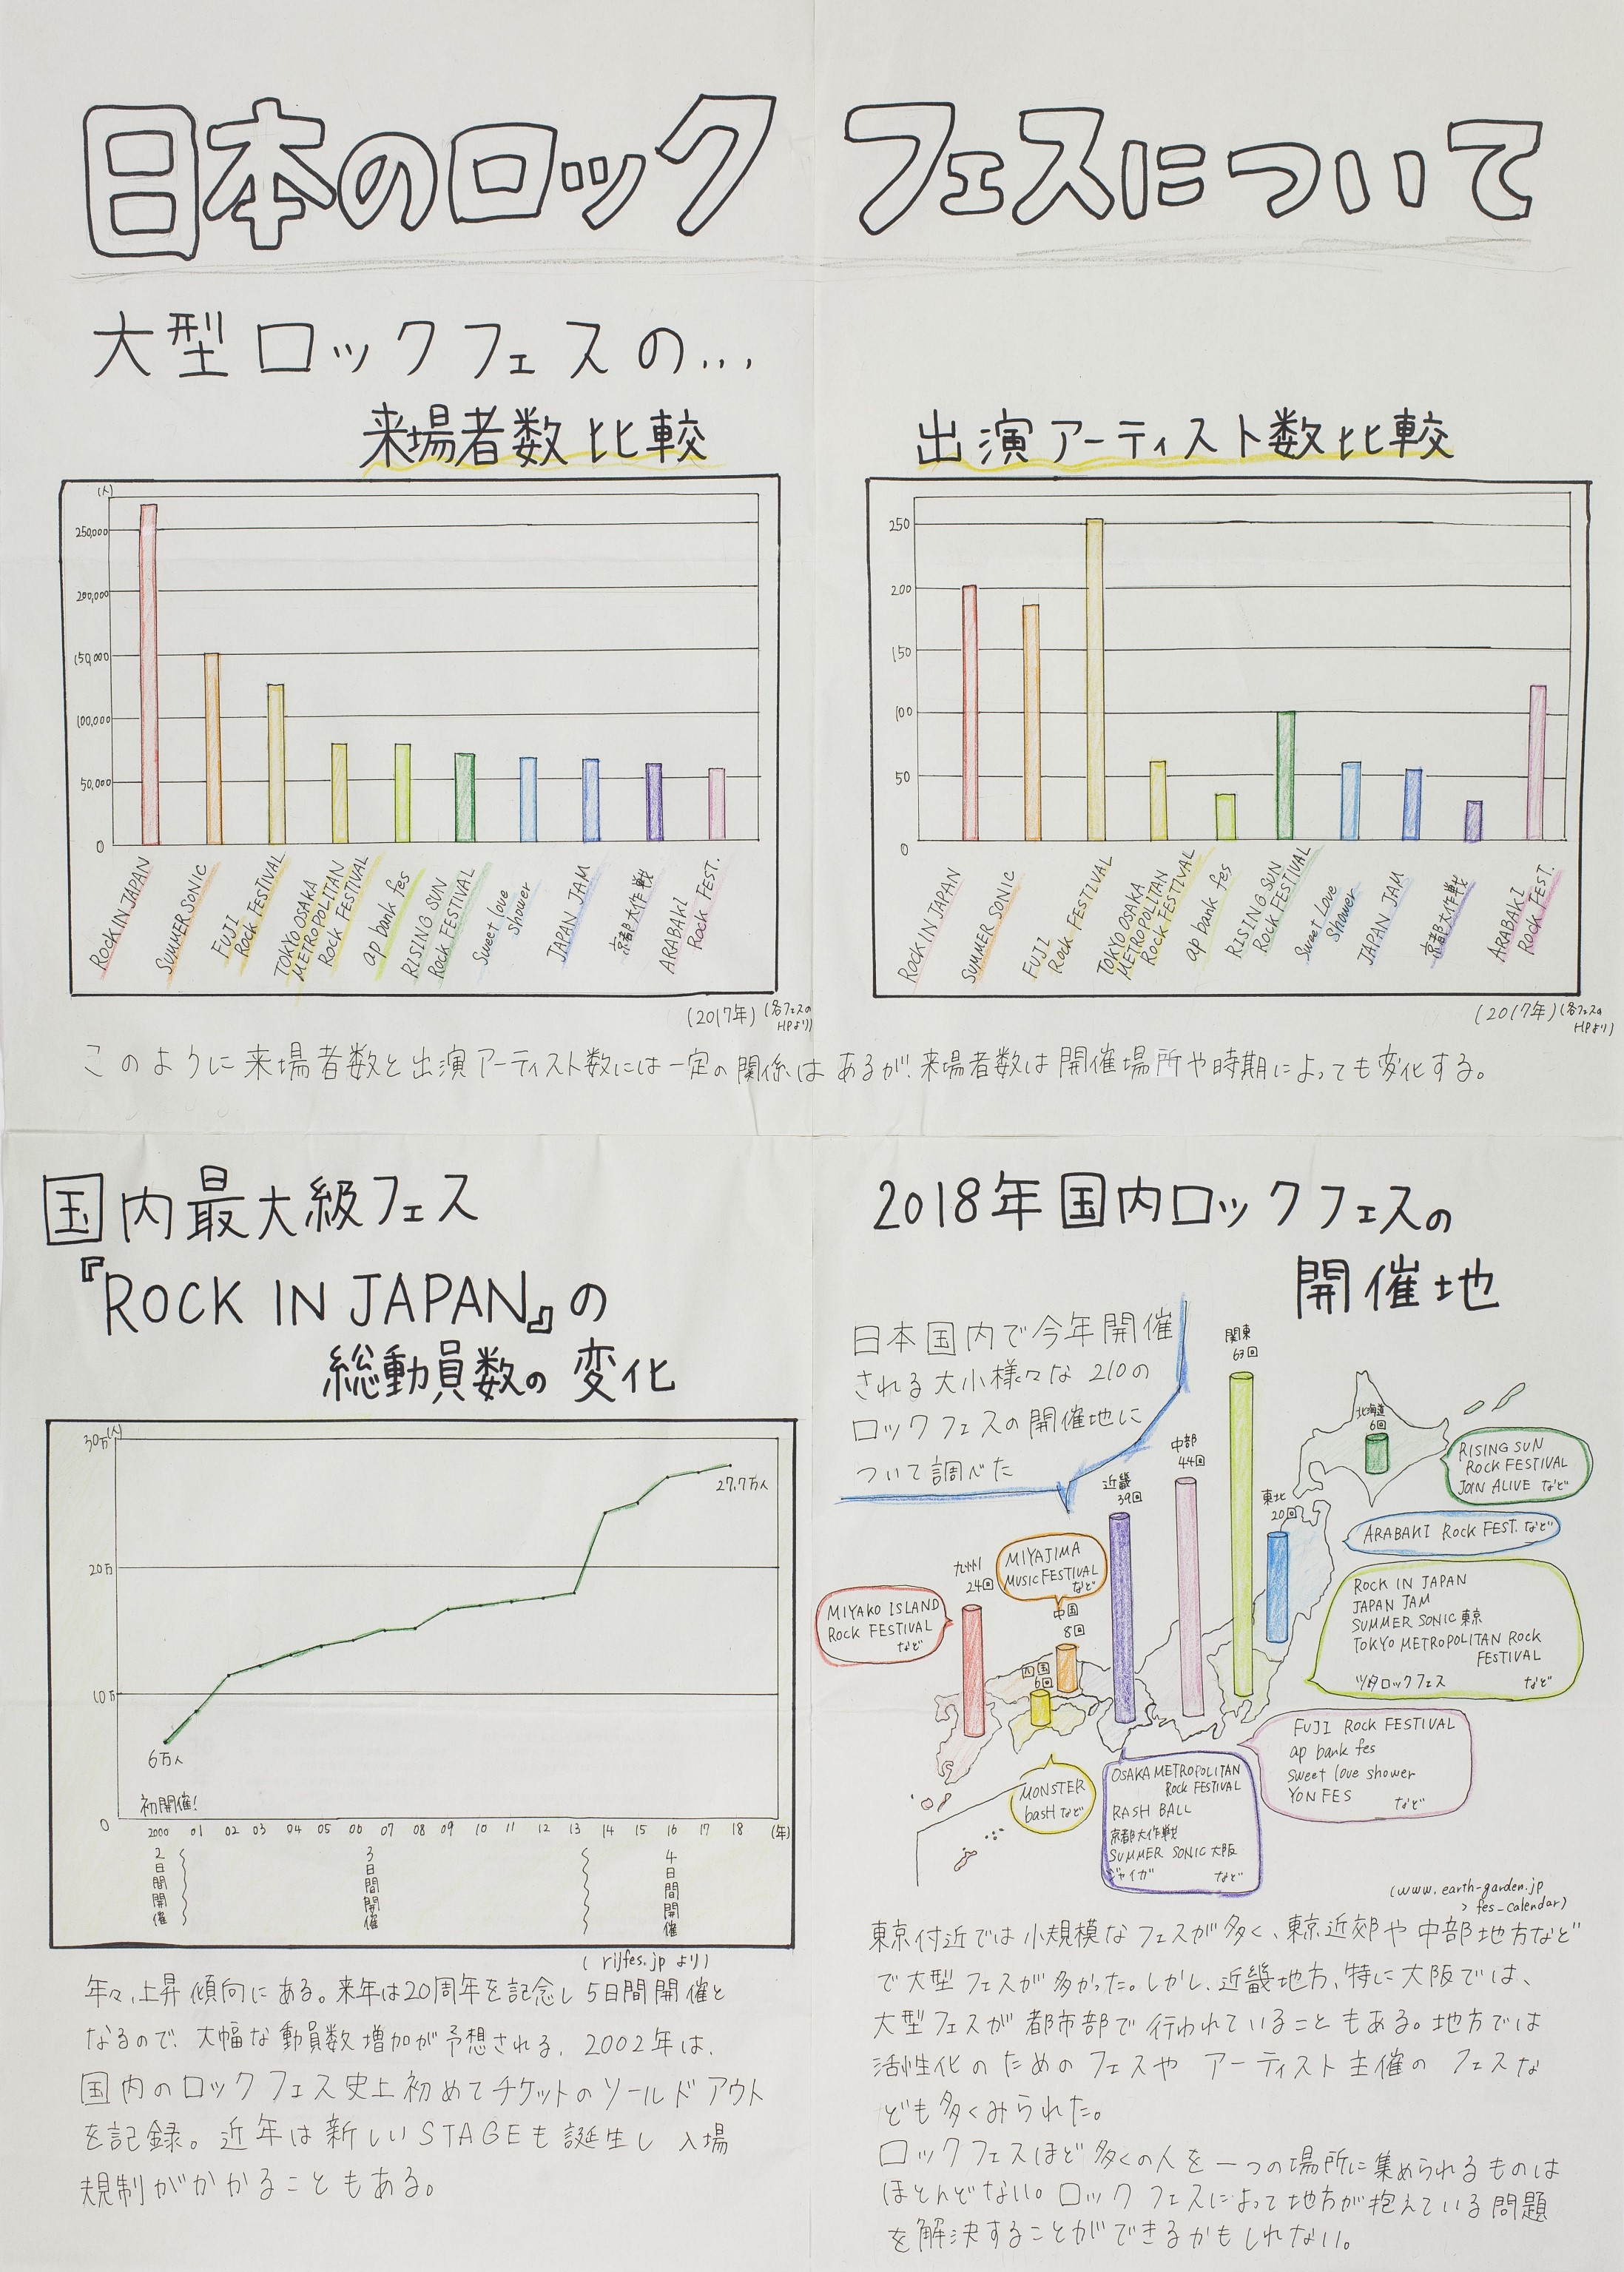 日本のロックフェスについて
大型ロックフェスの...
来場者数比較
(人)
250,000
200,000
150,000
100,000
50,000
0
ROCK IN JAPAN
SUMMER SONIC
FUJI
Rock FESTIVAL
TOKYO OSAKA
METROPOLITAN
Rock FESTIVAL
ap bank fes
RISING SUN
Rock FESTIVAL
Sweet love
shower
JAPAN JAM
京都大作戦
ARABAKI
Rock FEST.
(2017年)(各フェスの
HPより)
出演アーティスト数比較
250
200
150
100
50
0
ROCK IN JAPAN
SUMMER SONIC
FUJI
Rock FESTIVAL
TOKYO OSAKA
METROPOLITAN
Rock FESTIVAL
ap bank fes
RISING SUN
Rock FESTIVAL
Sweet Love
Shower
JAPAN JAM
京都大作戦
ARABAKI
Rock FEST.
(2017年)(各フェスの
HPより)
このように来場者数と出演アーティスト数には一定の関係はあるが、来場者数は開催場所や時期によっても変化する。
国内最大級フェス
『ROCK IN JAPAN』の
総動員数の変化
30万(人)
20万
10万
0
27.7万人
6万人
初開催!
2000 01 02 03 04 05 06 07 08 09 10 11 12 13 14 15 16 17 18 (年)
2日間開催
3日間開催
4日間開催
(rijfes.jpより)
年々、上昇傾向にある。来年は20周年を記念し5日間開催と
なるので、大幅な動員数増加が予想される。2002年は、
国内のロックフェス史上初めてチケットのソールドアウト
を記録。近年は新しいSTAGEも誕生し入場
規制がかかることもある。
2018年国内ロックフェスの
開催地
日本国内で今年開催
される大小様々な210の
ロックフェスの開催地に
ついて調べた
関東
63回
北海道
6回
中部
44回
近畿
39回
東北
20回
九州
24回
中国
8回
四国
6回
RISING SUN
ROCK FESTIVAL
JOIN ALIVE など
ARABAKI Rock FEST. など
MIYAJIMA
MUSIC FESTIVAL
など
MIYAKO ISLAND
Rock FESTIVAL
など
ROCK IN JAPAN
JAPAN JAM
SUMMER SONIC 東京
TOKYO METROPOLITAN Rock
FESTIVAL
ツタロックフェス など
FUJI Rock FESTIVAL
ap bank fes
sweet love shower
YON FES など
MONSTER
basH など
OSAKA METROPOLITAN
Rock FESTIVAL
RASH BALL
京都大作戦
SUMMER SONIC 大阪
ジャイガ など
(www.earth-garden.jp
> fes-calendar)
東京付近では小規模なフェスが多く、東京近郊や中部地方など
で大型フェスが多かった。しかし、近畿地方、特に大阪では、
大型フェスが都市部で行われていることもある。地方では
活性化のためのフェスやアーティスト主催のフェスな
ども多くみられた。
ロックフェスほど多くの人を一つの場所に集められるものは
ほとんどない。ロックフェスによって地方が抱えている問題
を解決することができるかもしれない。